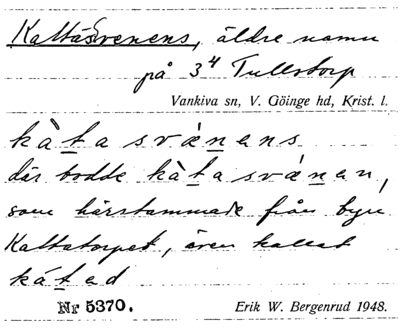 Kattasvenens, äldre namn
på 3⁴ Tullstorp
Vankiva sn, V. Göinge hd, Krist. l.
kàta svǽnens
där bodde kàta svǽnen,
som härstammade från byn
Kattatorpet, även kallat
kátad
Nr 5370. Erik W. Bergenrud 1948.